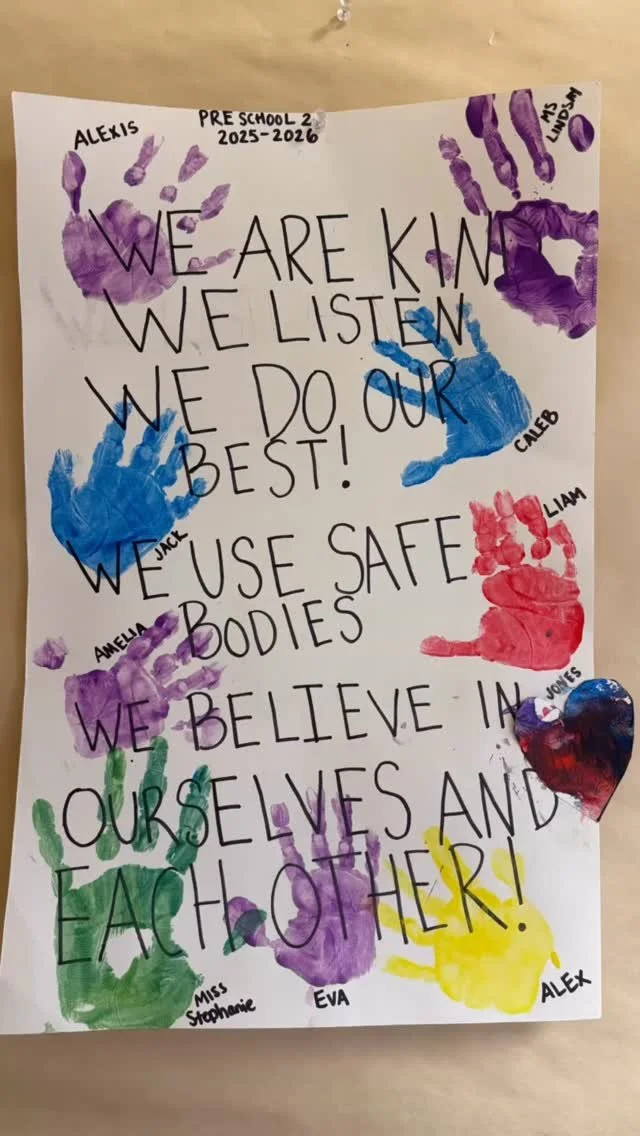 PRESCHOOL 2
2025-2026
ALEXIS
MS
LINDSAY
WE ARE KIND
WE LISTEN
WE DO OUR
BEST!
CALEB
JACK
LIAM
WE USE SAFE
BODIES
AMELIA
JONES
WE BELIEVE IN
OURSELVES AND
EACH OTHER!
MISS
Stephanie
EVA
ALEX